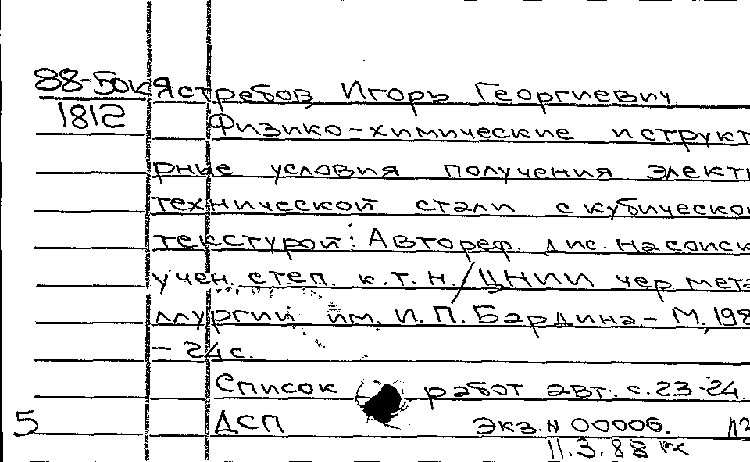 88-50к Ястребов, Игорь Георгиевич
1812 Физико-химические и структ
рные условия получения элект
технической стали с кубическо
текстурой: Автореф. дис. на соиск
учен. степ. к.т.н./ЦНИИ чер мета
ллургии им. И.П. Бардина - М, 198
- 24 с.
Список работ авт. с. 23-24
5 ДСП Экз. N 00006.
11.3.88